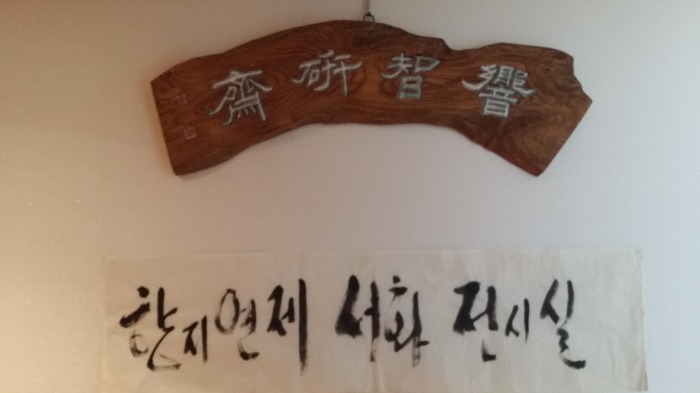 響智硏齋
향지연제 서화 전시실